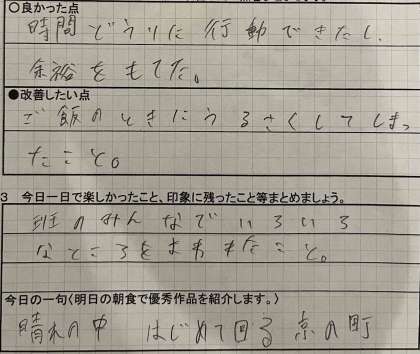 ○良かった点
時間どうりに行動できたし、
余裕をもてた。
●改善したい点
ご飯のときにうるさくしてしまっ
たこと。
3 今日一日で楽しかったこと、印象に残ったこと等まとめましょう。
班のみんなでいろいろ
なところをまわれたこと。
今日の一句(明日の朝食で優秀作品を紹介します。)
晴れの中 はじめて回る 京の町